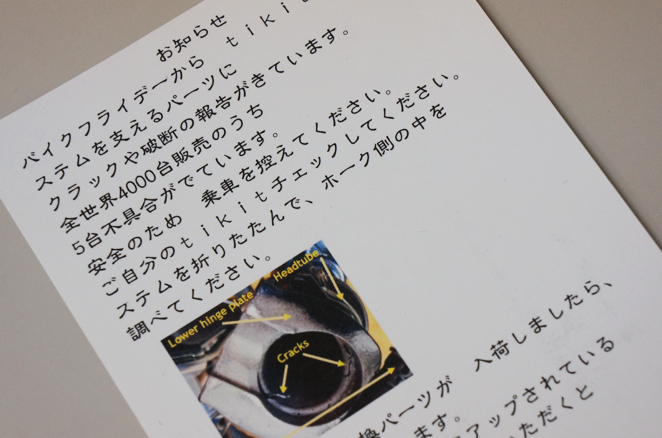 お知らせ
バイクフライデーから tikit
ステムを支えるパーツに
クラックや破断の報告がきています。
全世界4000台販売のうち
5台不具合がでています。
安全のため 乗車を控えてください。
ご自分のtikitチェックしてください。
ステムを折りたたんで、ホーク側の中を
調べてください。
Lower hinge plate
Headtube
Cracks
換パーツが 入荷しましたら、
ます。
アップされている
ただくと